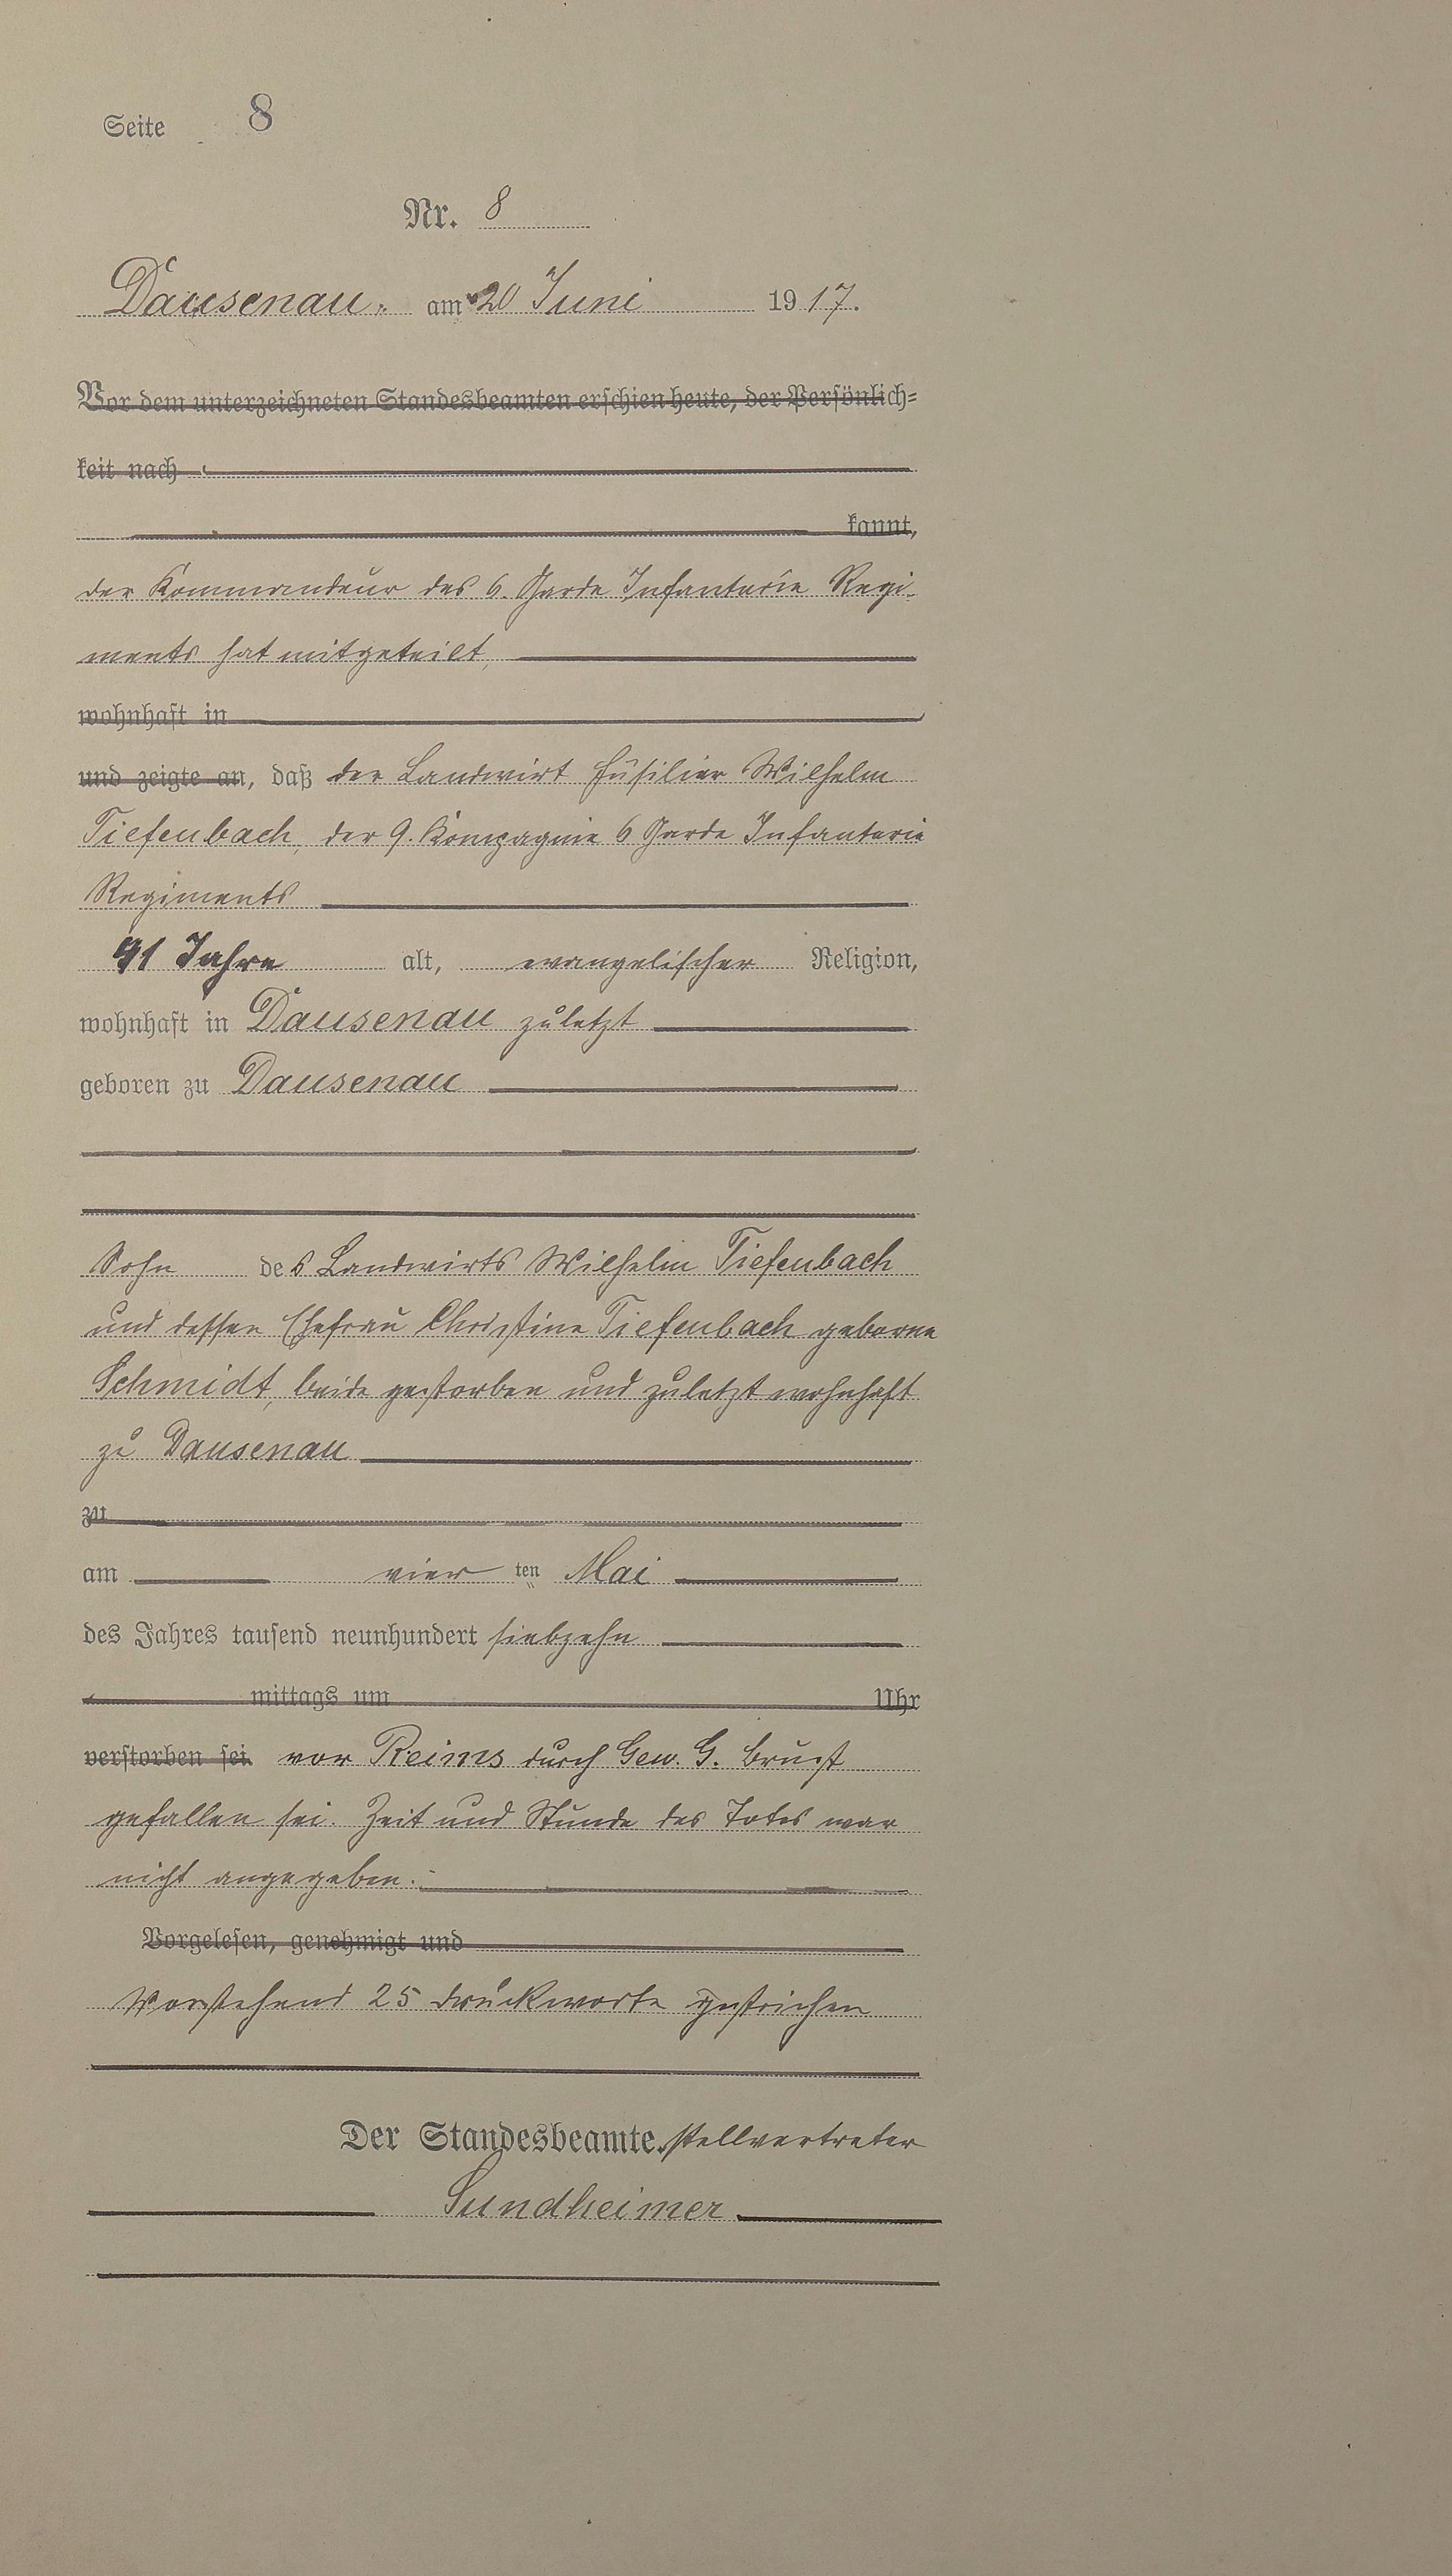 Seite 8
Nr. 8
Dausenau. am 20 Juni 1917.
Vor dem unterzeichneten Standesbeamten erschien heute, der Persönlich=
keit nach
kannt,
der Kommandeur des 6. Garde Infanterie Regi-
ments hat mitgeteilt,
wohnhaft in
und zeigte an, daß der Landwirt Füsilier Wilhelm
Tiefenbach, der 9. Kompagnie 6 Garde Infanterie
Regiments
41 Jahre alt, evangelischer Religion,
wohnhaft in Dausenau zuletzt
geboren zu Dausenau
Sohn des Landwirts Wilhelm Tiefenbach
und dessen Ehefrau Christine Tiefenbach geborne
Schmidt, beide gestorben und zuletzt wohnhaft
zu Dausenau
zu
am vier ten Mai
des Jahres tausend neunhundert siebzehn
mittags um Uhr
verstorben sei vor Reims durch Gew. G. Brust
gefallen sei. Zeit und Stunde des Totes war
nicht angegeben.
Vorgelesen, genehmigt und
Vorstehend 25 Druckworte gestrichen
Der Standesbeamte. stellvertreter
Sundheimer